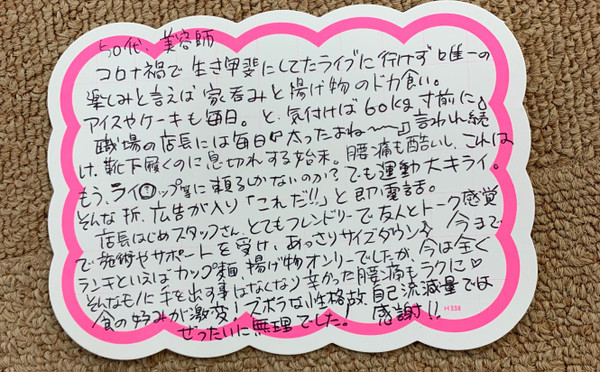 50代、美容師
コロナ禍で生き甲斐にしてたライブに行けず唯一の
楽しみと言えば家呑みと揚げ物のドカ食い。
アイスやケーキも毎日。と、気付けば60kg寸前に
職場の店長には毎日「太ったよね〜〜」言われ続
け、靴下履くのに息切れする始末。腰痛も酷いし、これは
もう、ライ○ップ等に頼るしかないのか?でも運動大キライ。
そんな折、広告が入り「これだ!!」と即電話。
店長はじめスタッフさん、とてもフレンドリーで友人とトーク感覚
で施術やサポートを受け、あっさりサイズダウン♪ 今まで
ランチといえばカップ麺、揚げ物オンリーでしたが、今は全く
そんなモノに手を出す事はなくなり辛かった腰痛もラクに♡
食の好みが激変!ズボラな性格故、自己流減量では
ぜったいに無理でした。感謝!!
H 338